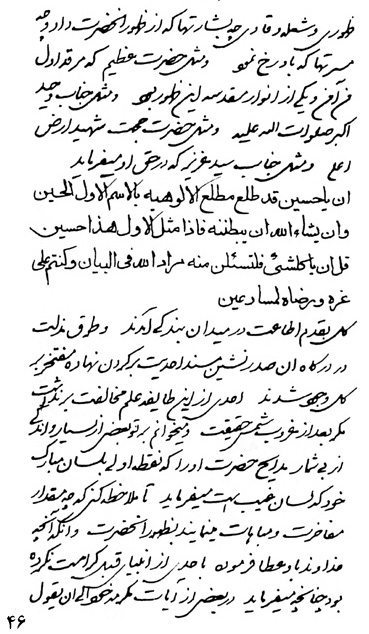 ظهوری و شعله وقادی چه بشارتها که از ظهور آنحضرت داد و چه
میرتها که با و رخ نمود و مثل حضرت عظیم که مرقد اول
فرآفر ویکی از انوار مقدسه این ظهور بود و مثل جناب وحید
اکبر صلوات الله علیه و مثل حضرت حجت شهید ارض
اعلی و مثل جناب سید عزیز که در حق او میفرماید
ان یا حسین قد طلع مطلع الالوهیه بالاسم الاول الحین
وان یشاء الله ان یبطننه فاذا مثل الاول هذا حسین
قل ان یا کلشیئ فلتسئلن منه مراد الله فی البیان و کنتم علی
غره و رضاه لمسادعین
کل بقدم اطاعت در میدان بندگی آمدند و طوق مذلت
در درگاه ان صدرنشین مسند احدیت بر گردن نهاده مفتخر بر
کل وجود شدند احدی از این طایفه علم مخالفت بر نداشت
مگر بعد از غروب شمس حقیقت و میخوانم بر تو بعضی از بسیار و اندکی
از بی شمار مدایح حضرت او را که نقطه اولی بلسان مبارک
خود که لسان غیب است میفرماید تا ملاحظه کنی که چه مقدار
مفاخرت و مباهات مینمایند بظهور آنحضرت و آنکه آنچه
خداوند باو عطا فرموده باحدی از انبیای قبل کرامت نکرده
بود چنانچه میفرماید در بعضی از آیات مکرمه خود الی ان یقول
۴۶